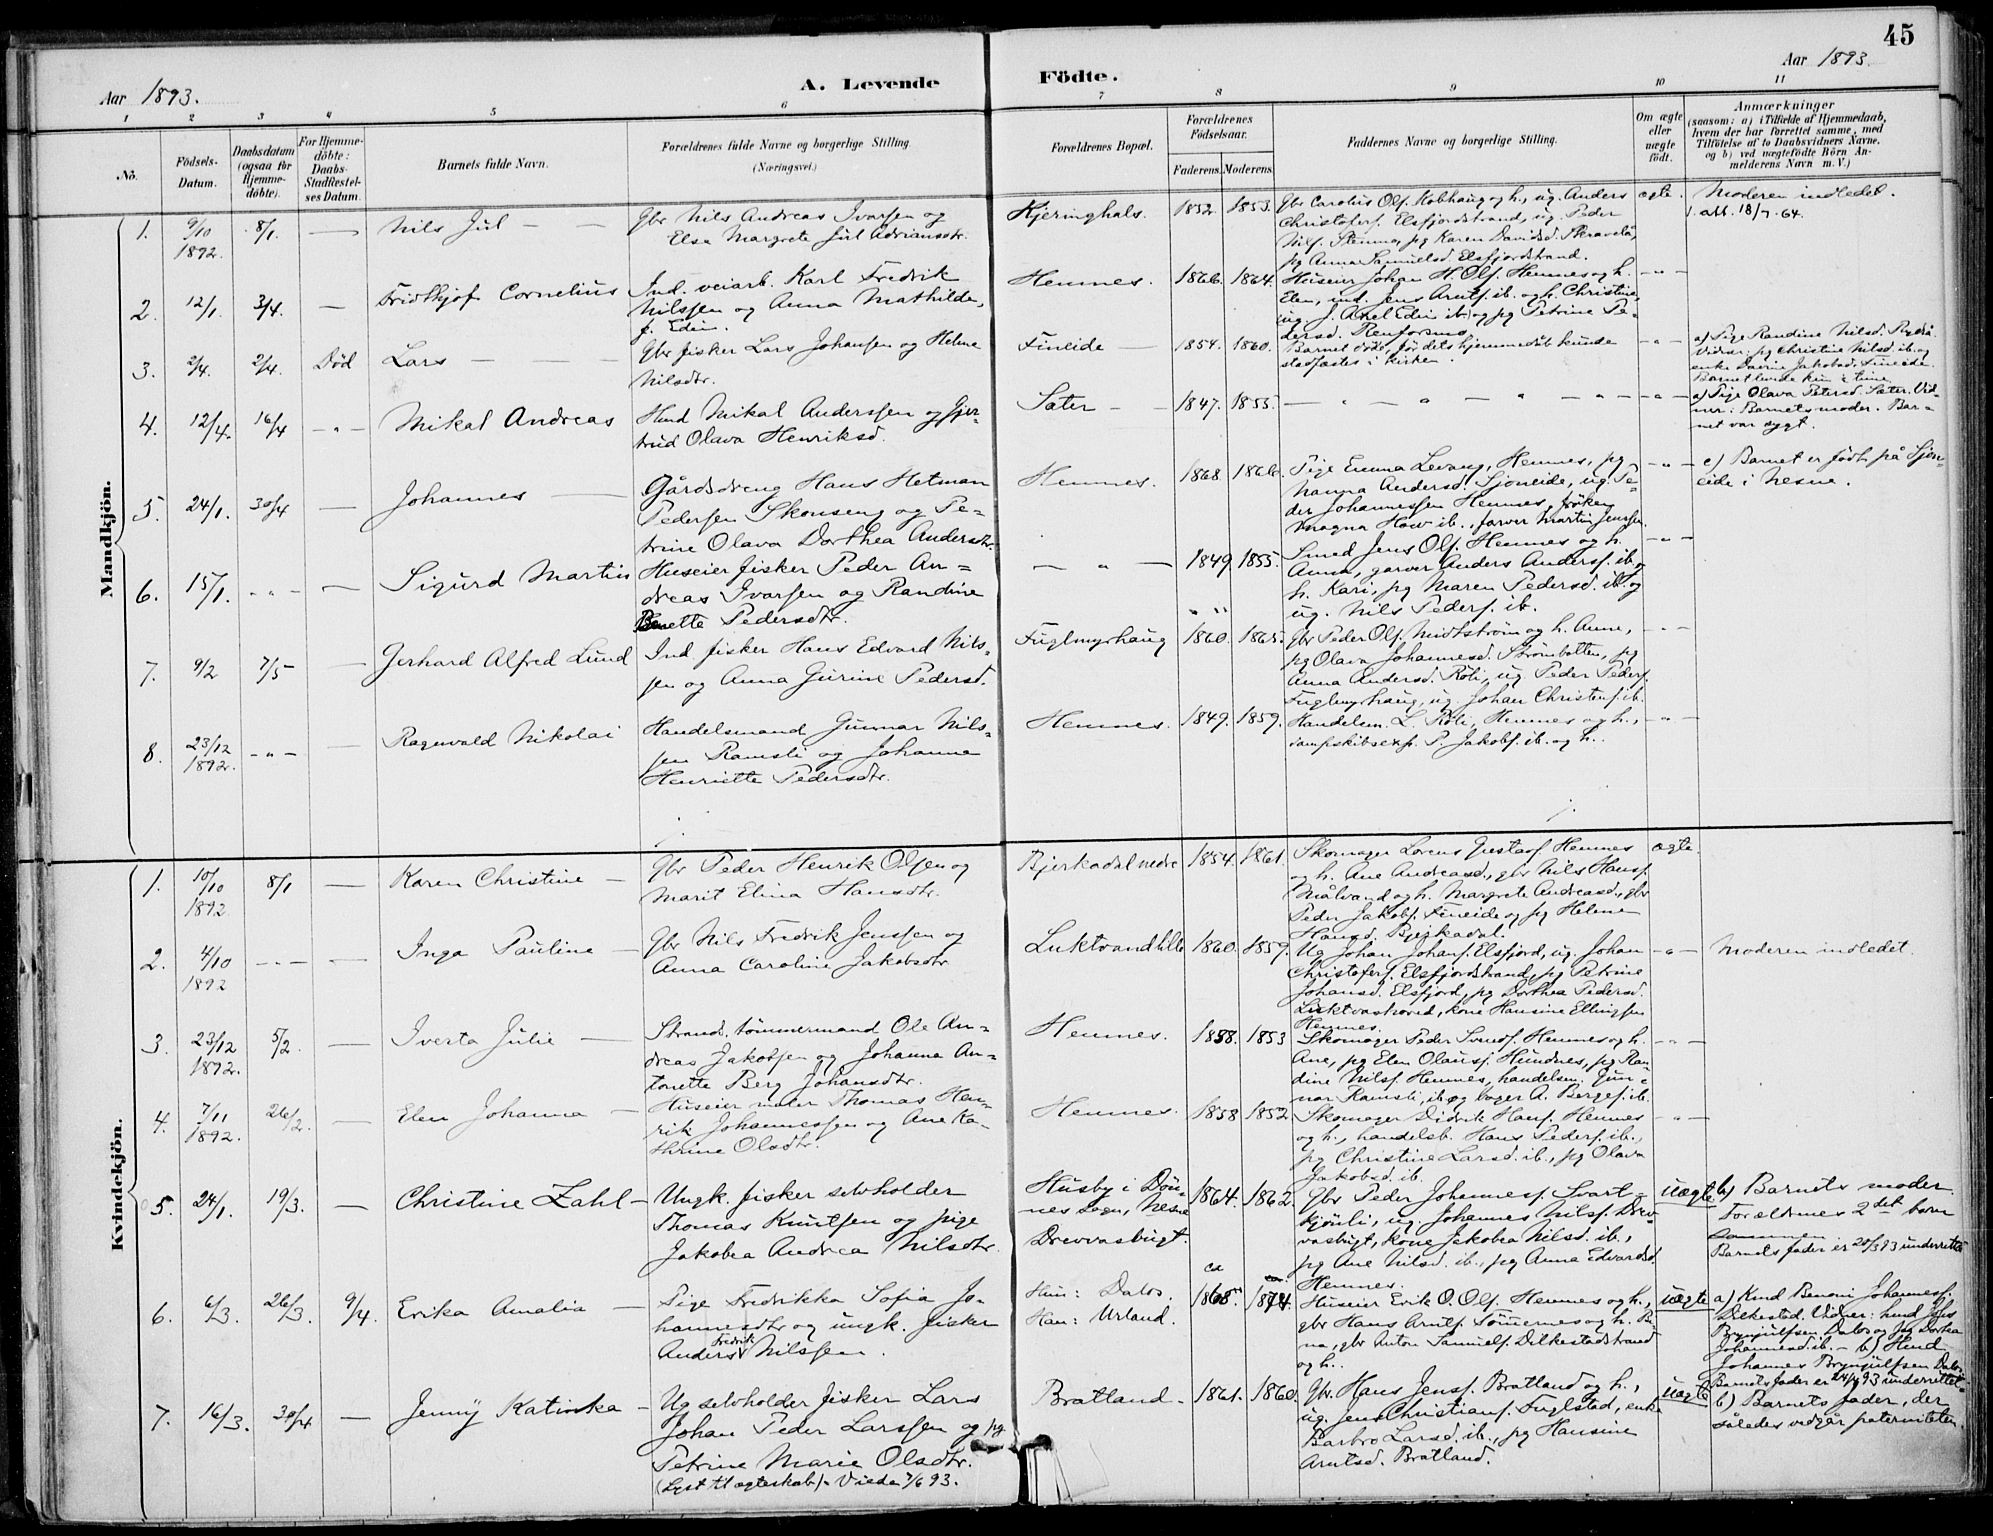 45
Aar 1893.
A. Levende
Födte.
Aar 1893.
1 2 3 4 5 6 7 8 9 10 11
No.
Födsels-
Datum.
Daabsdatum
(ogsaa for
Hjemme-
döbte).
For Hjemme-
döbte:
Daabs-
Stadfæstel-
ses Datum.
Barnets fulde Navn.
Forældrenes fulde Navne og borgerlige Stilling.
(Næringsvei.)
Forældrenes Bopæl.
Forældrenes
Födselsaar.
Faderens. Moderens.
Faddernes Navne og borgerlige Stilling.
Om ægte
eller
uægte
födt.
Anmærkninger
(saasom: a) i Tilfælde af Hjemmedaab,
hvem der har forrettet samme, med
Tilföielse af to Daabsvidners Navne,
og b) ved uægtefödte Börn An-
melderens Navn m. V.)
Mandkjön.
1. 9/10 1892. 8/1. — Nils Jul — —
Gbr Nils Andreas Ivarsen og
Else Margrete Jul Adriansdtr.
Kjeringhals. 1852. 1853.
Gbr Carolius Ols. Kobhaug og h., ug. Anders
Christofers. Elsfjordstrand, ug. Peder
Nils. Stenmo, pg Karen Davidsd.
pg Anna Samuelsd. Elsfjordstrand.
ægte.
Moderen indledet.
1. att. 18/7.64.
2. 12/1. 3/4. — Fridthjof Cornelius
Ind. veiarb. Karl Fredrik
Nilssen og Anna Mathilde,
f. Edin.
Hemnes. 1866. 1864.
Huseier Johan H. Ols. Hemnes og h.
Elen, ind. Jens Arnts. ib. og h. Christine,
ug. J. Axel Edin ib. og pg Petrine Pe-
dersd. Renforsmo
- " -
3. 2/4. 2/4. Död Lars — —
Gbr fisker Lars Johansen og Helene
Nilsdtr.
Fineide — 1854. 1860.
Barnet döde för dets hjemmedåb kunde
stadfæstes i kirken.
- " -
a) Pige Randine Nilsd.
Vidner: pg Christine Nilsd. ib. og
enke Jakobsd. Fineide.
Barnet levde kun 2 timer
4. 12/4. 16/4 - " - Mikal Andreas
Hmd Mikal Anderssen og Gjer-
trud Olava Henriksd.
Sæter — — 1847. 1855.
— " — " — " — " —
- " -
a) Pige Olava Petersd. Sæter. Vid-
ner: Barnets moder. Bar-
net var sygt.
5. 24/1. 30/4 — Johannes —
Gårdsdreng Hans Hetman
Pedersen Skonseng og Pe-
trine Olava Dorthea Andersdtr.
Hemnes. 1868. 1866.
Pige Emma Levang, Hemnes, pg
Nanna Andersd. Sjoneide, ug. Pe-
der Johannessen Hemnes, fröken
Magna How ib., farver Martin Jenssen.
- " -
c) Barnet er födt på Sjon-
eide i Nesne.
6. 15/1. - " - — Sigurd Martin
Huseier fisker Peder An-
dreas Ivarsen og Randine
Benette Pedersdtr.
— " — 1849. 1855.
" "
Smed Jens Ols. Hemnes og h.
Anna, garver Anders Anders. ib. og
h. Kari, pg Maren Pedersd. ib. og
ug. Nils Peders. ib.
- " -
7. 9/2 7/5 — Gerhard Alfred Lund
Ind fisker Hans Edvard Nils-
sen og Anna Gurine Pedersd.
Fuglmyrhaug 1860. 1865.
Gbr Peder Ols. Midtström og h. Anne,
pg Olava Johannesd. Strömbotten, pg
Anna Andersd. Röli, ug Peder Peders.
Fuglmyrhaug, ug. Johan Christens. ib.
- " -
8. 23/12 1892. - " - — Ragnvald Nikolai
Handelsmand Gunnar Nils-
sen Ramsli og Johanna
Henriette Pedersdtr.
Hemnes. 1849. 1859.
Handelsm. L. Röli, Hemnes og h.,
dampskibsexp. P. Jakobs. ib. og h.
- " -
Kvindekjön.
1. 10/10 1892 8/1 — Karen Christine —
Gbr Peder Henrik Olsen og
Marit Elina Hansdtr.
Bjerkadal nedre 1854. 1861.
Skomager Lorens Gustass. Hemnes
og h. Ane Andreasd., gbr Nils Hans.
Målvand og h. Margrete Andreasd., gbr
Peder Jakobs. Fineide og pg Helene
Hansd. Bjerkadal.
ægte
2. 4/10 1892 - " - — Inga Pauline —
Gbr Nils Fredrik Jenssen og
Anna Caroline Jakobsdtr
Luktvandlille 1860. 1859.
Ug Johan Johans. Elsfjord, ug. Johan
Christofers. Elsfjordstrand, pg Petrine
Johansd. Elsfjord, pg Dorthea Pedersd.
Luktvashoved, kone Hansine Ellingsen
Hemnes.
- " -
Moderen indledet.
3. 23/12 1892. 5/2. — Iverta Julie —
Strand. tömmermand Ole An-
dreas Jakobsen og Johanna An-
tonette Berg Johansdtr.
Hemnes. 1858. 1853
Skomager Peder Svends. Hemnes og h.
Ane, pg Elen Olaus. Hundnes, pg Ran-
dine Nils. Hemnes, handelsm. Gun-
nar Ramsli, ib. og bager A. Berges. ib.
- " -
4. 7/11 1892. 26/2. — Elen Johanna —
Huseier maler Thomas Hen-
rik Johannessen og Ane Ka-
thrine Olsdtr.
Hemnes. 1858 1852
Skomager Didrik Hans. Hemnes
og h., handelsb. Hans Peders. ib.,
pg Christine Larsd. ib., pg Olava
Jakobsd. ib.
- " -
5. 24/1. 19/3. — Christine Zahl —
Ungk. fisker selvholder
Thomas Knutsen og pige
Jakobea Andrea Nilsdtr.
Husby i Dön-
nes sogn, Nesne
Drevvasbugt.
1864. 1862.
Gbr Peder Johannes. Svart-
kjönli, ug. Johannes Nils. Drev-
vasbugt, kone Jakobea Nilsd. ib.,
pg Ane Nilsd. ib., pg Anna Edvardsd.
Hemnes.
uægte
b) Barnets moder.
Forældrenes 2det barn
sammen.
Barnets fader er 20/3 93 underrettet
6. 6/3. 26/3. 9/4. Erika Amalia —
Pige Fredrikka Sofia Jo-
hannesdtr og ungk. fisker
Anders Fredrik Nilssen.
Hun: Dalos.
Han: Urland.
ca 1868. 1874.
Huseier Erik O. Ols. Hemnes og h.,
gbr Hans Arnts. Tömernes og h. Bi-
na, gbr Anton Samuels. Dilkestadstrand
og h.
uægte
a) Kmd Benoni Johannes.
Dilkestad. Vidner: hmd Johs
Brynjulfsen Dalos og pg Dorthea
Johannesd. ib. — b) Hmd
Johannes Brynjulfsen Dalos.
Barnets fader er 24/4 93 underrettet.
7. 16/3. 30/4 — Jenny Katinka —
Ug selvholder fisker Lars
Johan Peder Larssen og pg
Petrine Marie Olsdtr.
(Lyst til ægteskab) - Viede 7/6 93.
Bratland. 1861. 1860.
Gbr. Hans Jens. Bratland og h.,
ug. Jens Christians. Fuglstad, enke
Barbro Larsd. ib., pg Hansine
Arntsd. Bratland.
uægte
b) Barnets fader, der
således vedgår paterniteten.